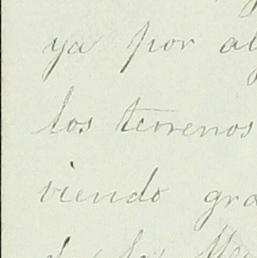 ya por al
los terrenos
viendo gra